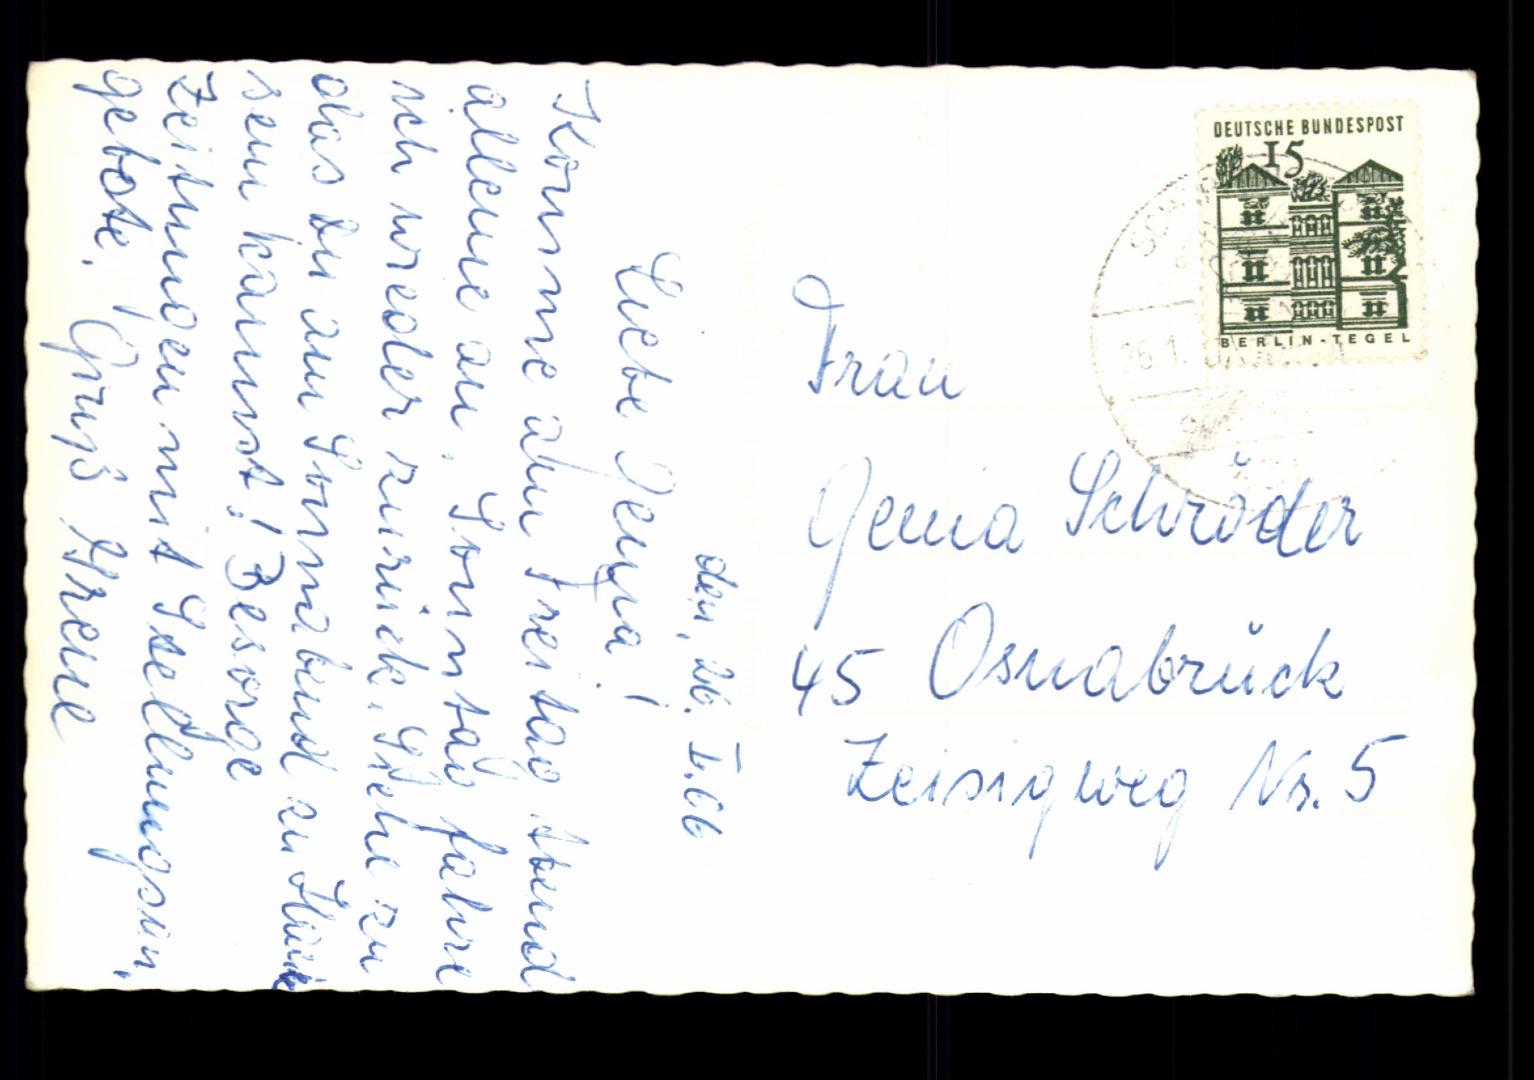 den, 26. I. 66
Liebe Gema!
Komme am Freitag Abend
alleine an, Sonntag fahre
ich wieder zurück. Siehe zu
das du am Sonnabend zu Hause
sein kannst! Besorge
Zeitungen mit Stellungsan,
gebote. Gruß Irene
DEUTSCHE BUNDESPOST
15
BERLIN-TEGEL
26.1.
Frau
Gema Schröder
45 Osnabrück
Zeisigweg Nr. 5